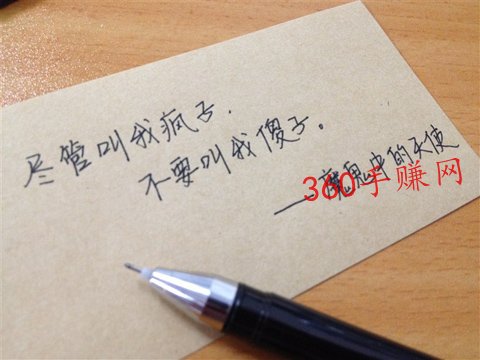 尽管叫我疯子.
不要叫我傻子。
——魔鬼中的天使
360手赚网